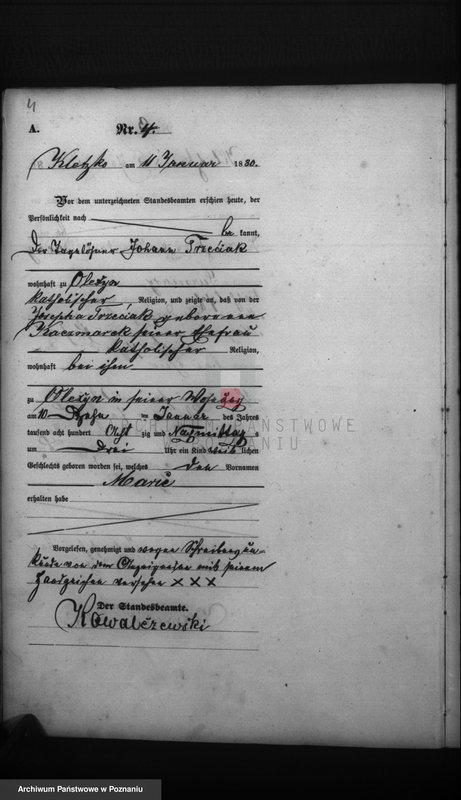 4
A.
Nr. 4.
Kletzko am 11 Januar 1880.
Vor dem unterzeichneten Standesbeamten erschien heute, der
Persönlichkeit nach
be kannt,
der Tagelöhner Johann Trzeciak
wohnhaft zu Olexyn
katholischer Religion, und zeigte an, daß von der
Josepha Trzeciak geborenen
Kaczmarek seiner Ehefrau
katholischer Religion,
wohnhaft bei ihm
zu Olexyn in seiner Wohnung
am 10 Zehn ten Januar des Jahres
tausend acht hundert Acht zig und Nachmittag s
um Drei Uhr ein Kind weib lichen
Geschlechts geboren worden sei, welches den Vornamen
Marie
erhalten habe
Vorgelesen, genehmigt und wegen Schreibensun-
kunde von dem Anzeigenden mit seinem
Handzeichen versehen XXX
Der Standesbeamte.
Kowalczewski
ARCHIWUM PAŃSTWOWE
W POZNANIU
Archiwum Państwowe w Poznaniu